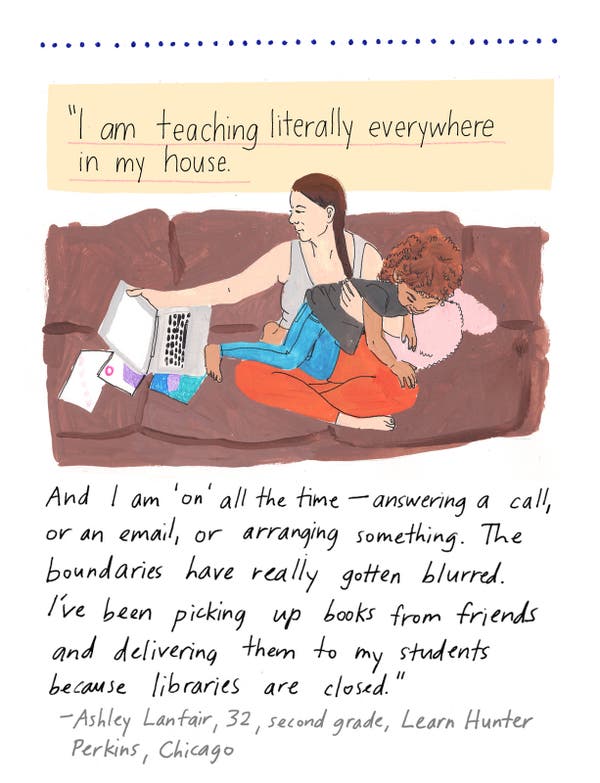 "I am teaching literally everywhere
in my house.
And I am 'on' all the time — answering a call,
or an email, or arranging something. The
boundaries have really gotten blurred.
I've been picking up books from friends
and delivering them to my students
because libraries are closed."
—Ashley Lanfair, 32, second grade, Learn Hunter
Perkins, Chicago